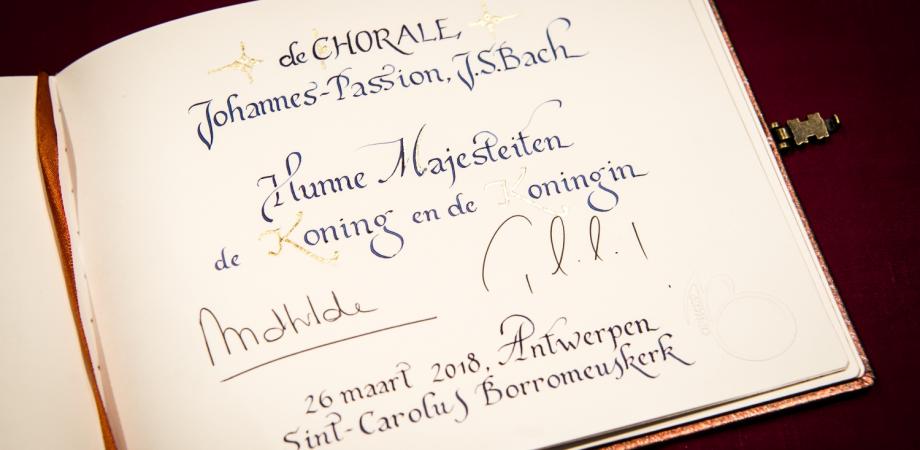 de CHORALE,
Johannes-Passion, J.S.Bach
Hunne Majesteiten
de Koning en de Koningin
Mathilde
26 maart 2018, Antwerpen
Sint-Carolus Borromeuskerk